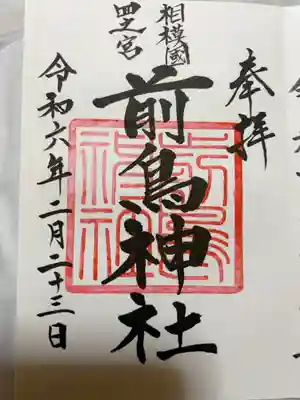 奉拝
相模國
四之宮
前鳥神社
令和六年二月二十三日